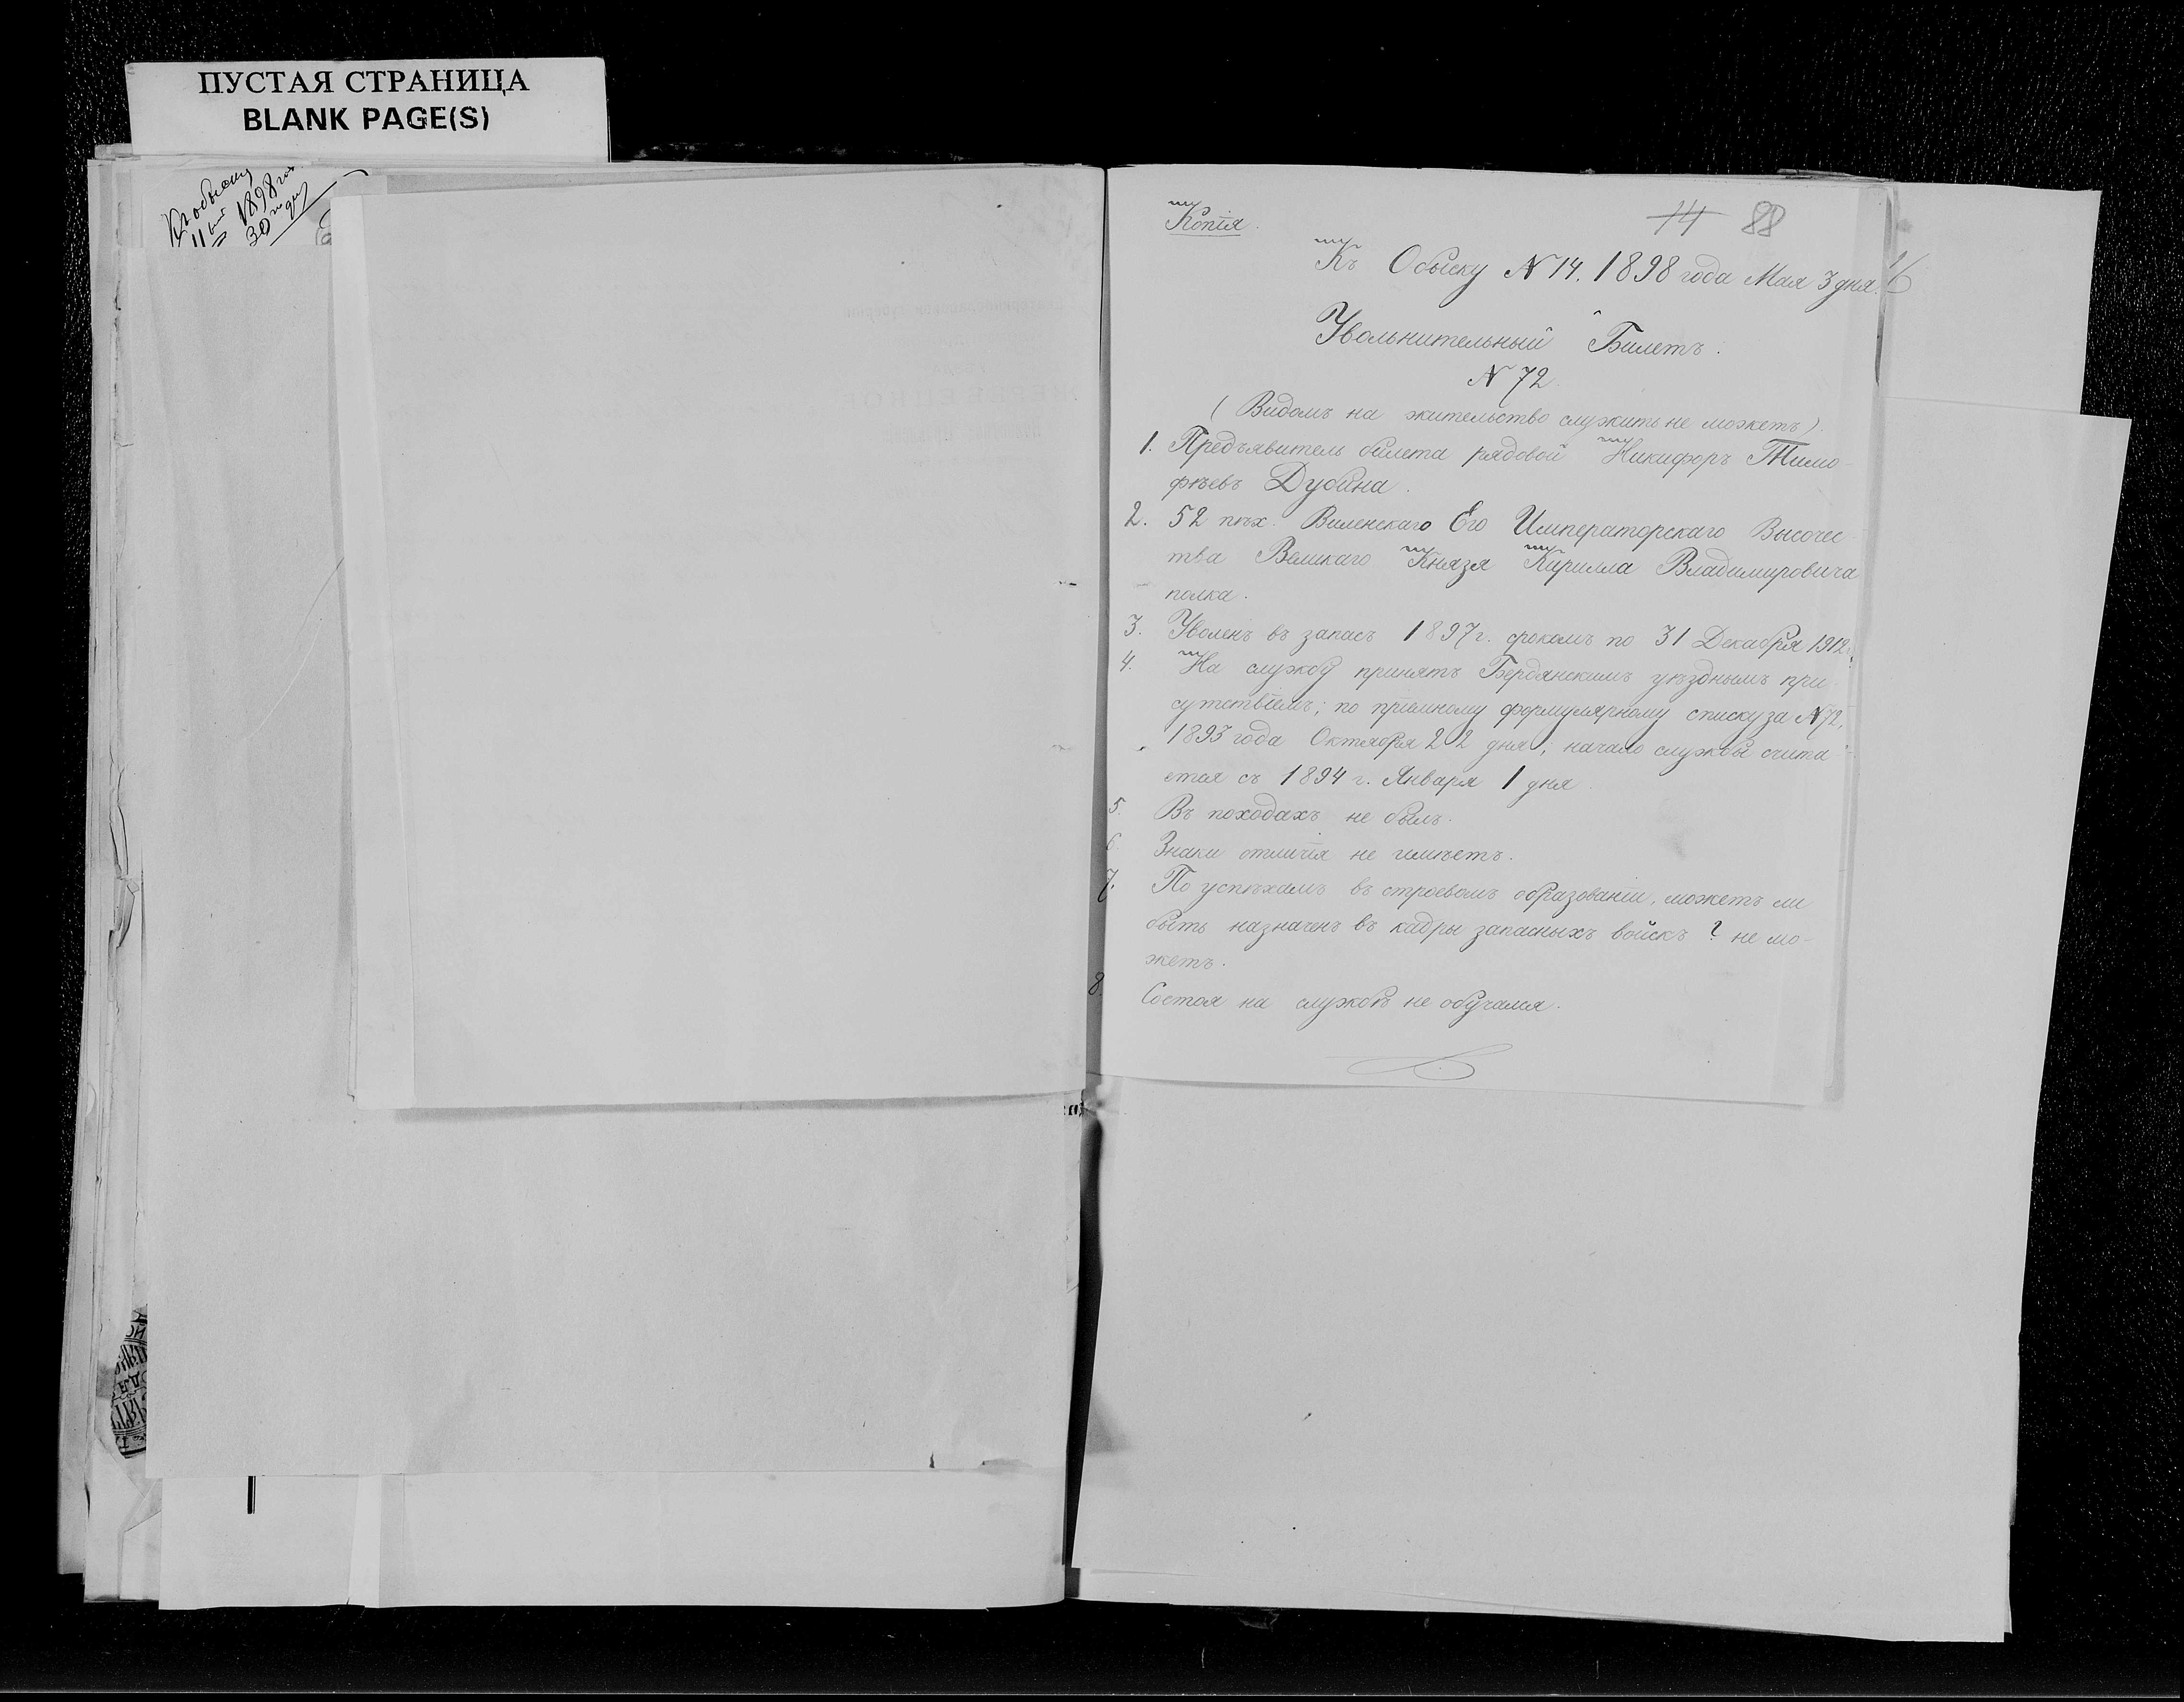 ПУСТАЯ СТРАНИЦА
BLANK PAGE(S)
Къ обыску
1898
30
Копія.
14 88
Къ Обыску N 14. 1898 года Мая 3 дня.
Увольнительный Билетъ.
N 72.
(Видомъ на жительство служить не можетъ).
1. Предъявитель билета рядовой Никифоръ Тимо-
фѣевъ Дубина.
2. 52 пѣх. Виленскаго Его Императорскаго Высочес
тва Великаго Князя Кирилла Владимировича
полка.
3. Уволенъ въ запасъ 1897 г. срокомъ по 31 Декабря 1912
4. На службу принятъ Бердянскимъ уѣзднымъ при-
сутствіемъ; по пріемному формулярному списку за N 72,
1893 года Октября 22 дня; начало службы счита-
ется съ 1894 г. Января 1 дня.
5. Въ походахъ не былъ.
6. Знаки отличія не имѣетъ.
7. По успѣхамъ въ строевомъ образованіи, можетъ ли
быть назначенъ въ кадры запасныхъ войскъ? не мо-
жетъ.
8. Состоя на службѣ не обучался.